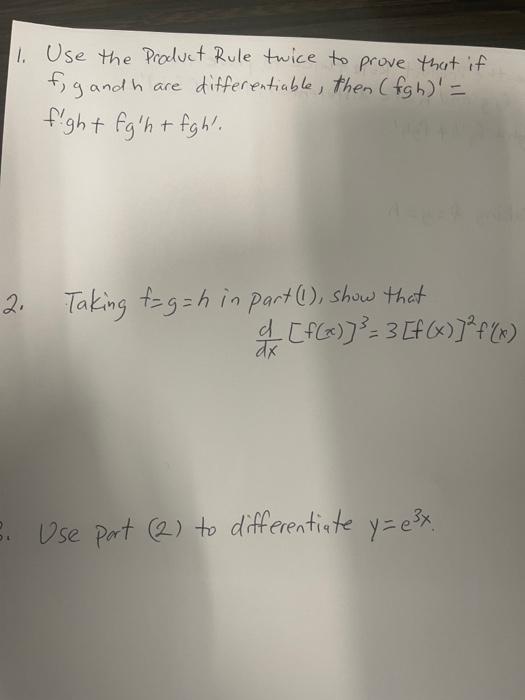 1. Use the Product Rule twice to prove that if
f, g and h are differentiable, then (fgh)' =
f'gh + fg'h + fgh'.
2. Taking f=g=h in part (1), show that
d/dx [f(x)]³ = 3[f(x)]² f'(x)
3. Use part (2) to differentiate y=e³ˣ.